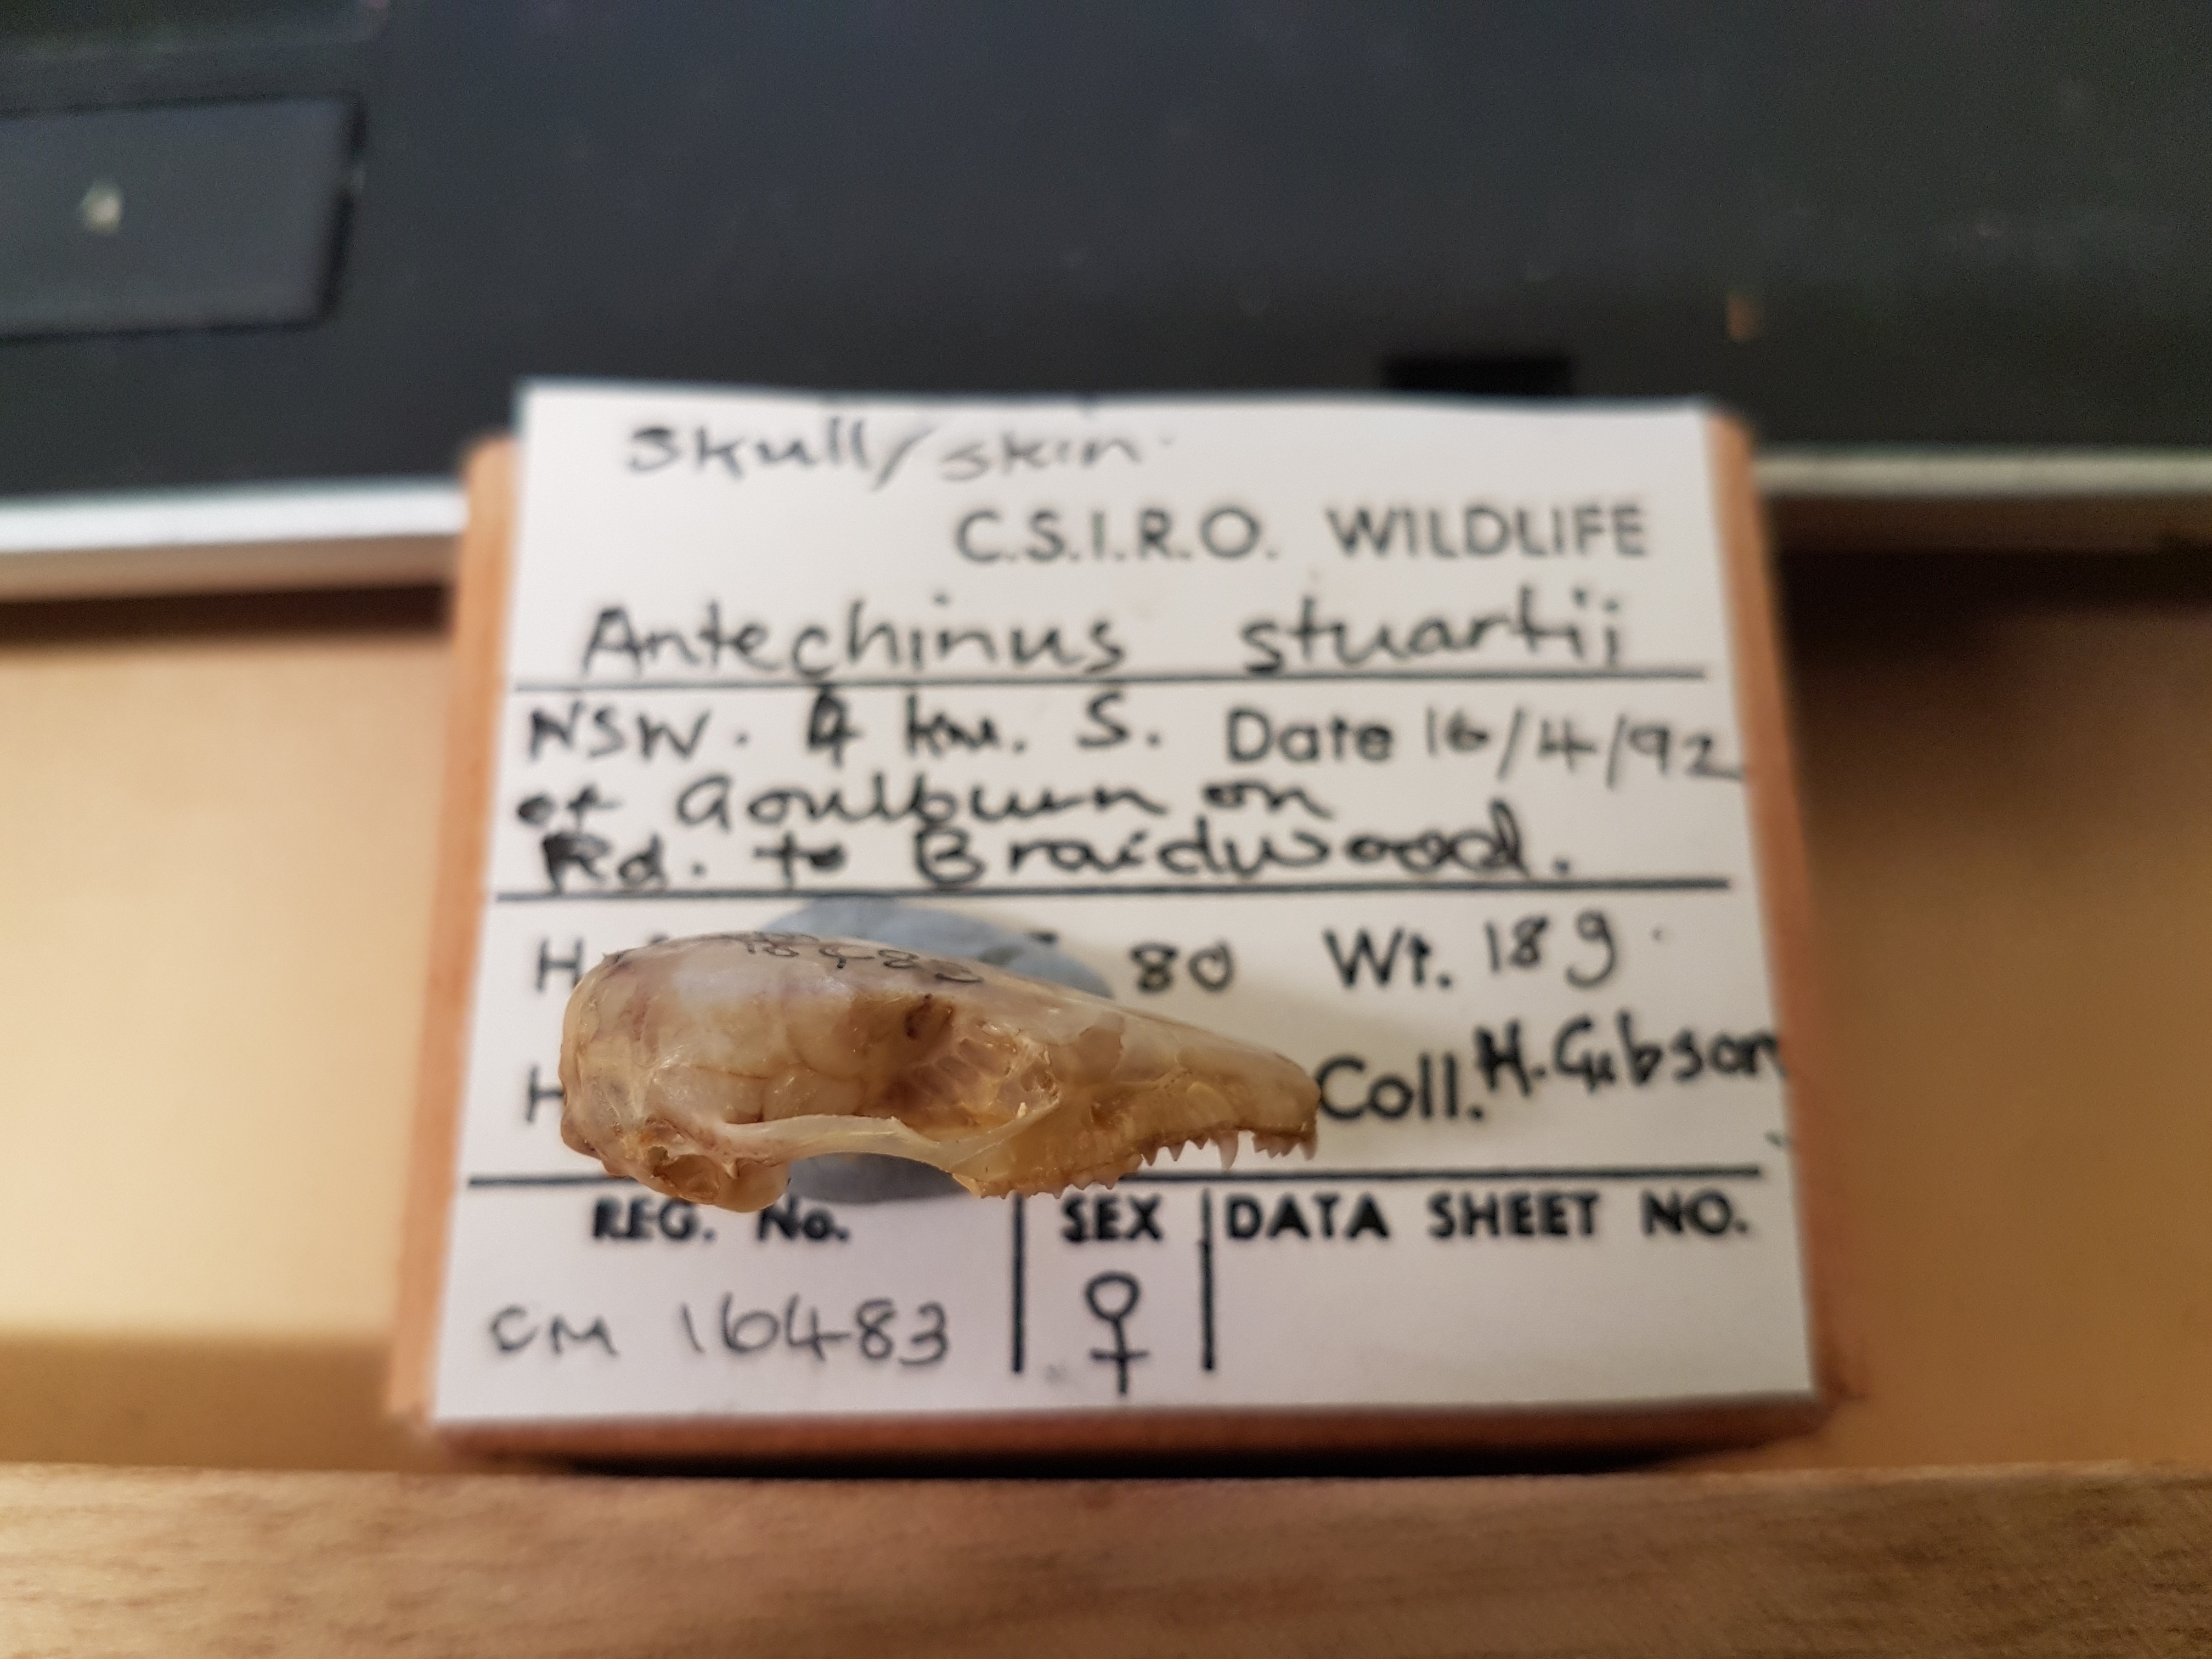 Skull/skin
C.S.I.R.O. WILDLIFE
Antechinus stuartii
NSW. 4 km. S. Date 16/4/92
of Goulburn on
Rd. to Braidwood.
H 80 Wt. 18g.
H Coll. H. Gibson
REG. No. SEX DATA SHEET NO.
CM 16483 ♀